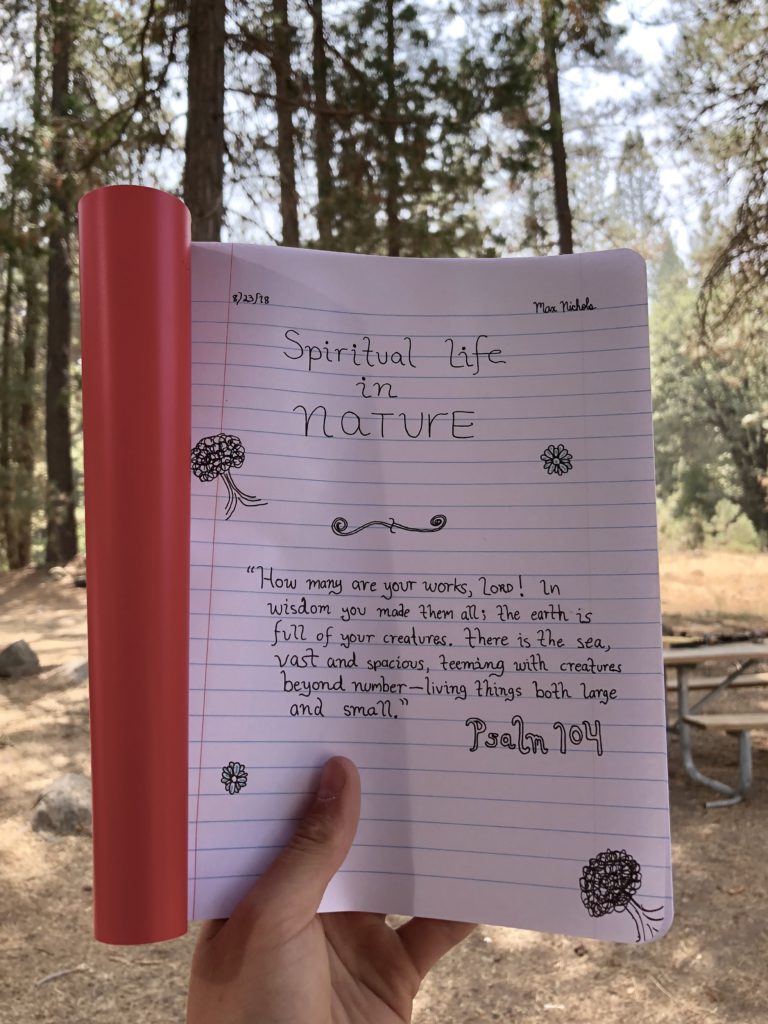 8/23/18
Max Nichols
Spiritual life
in
NATURE
“How many are your works, LORD! In
wisdom you made them all; the earth is
full of your creatures. There is the sea,
vast and spacious, teeming with creatures
beyond number—living things both large
and small.”
Psalm 104